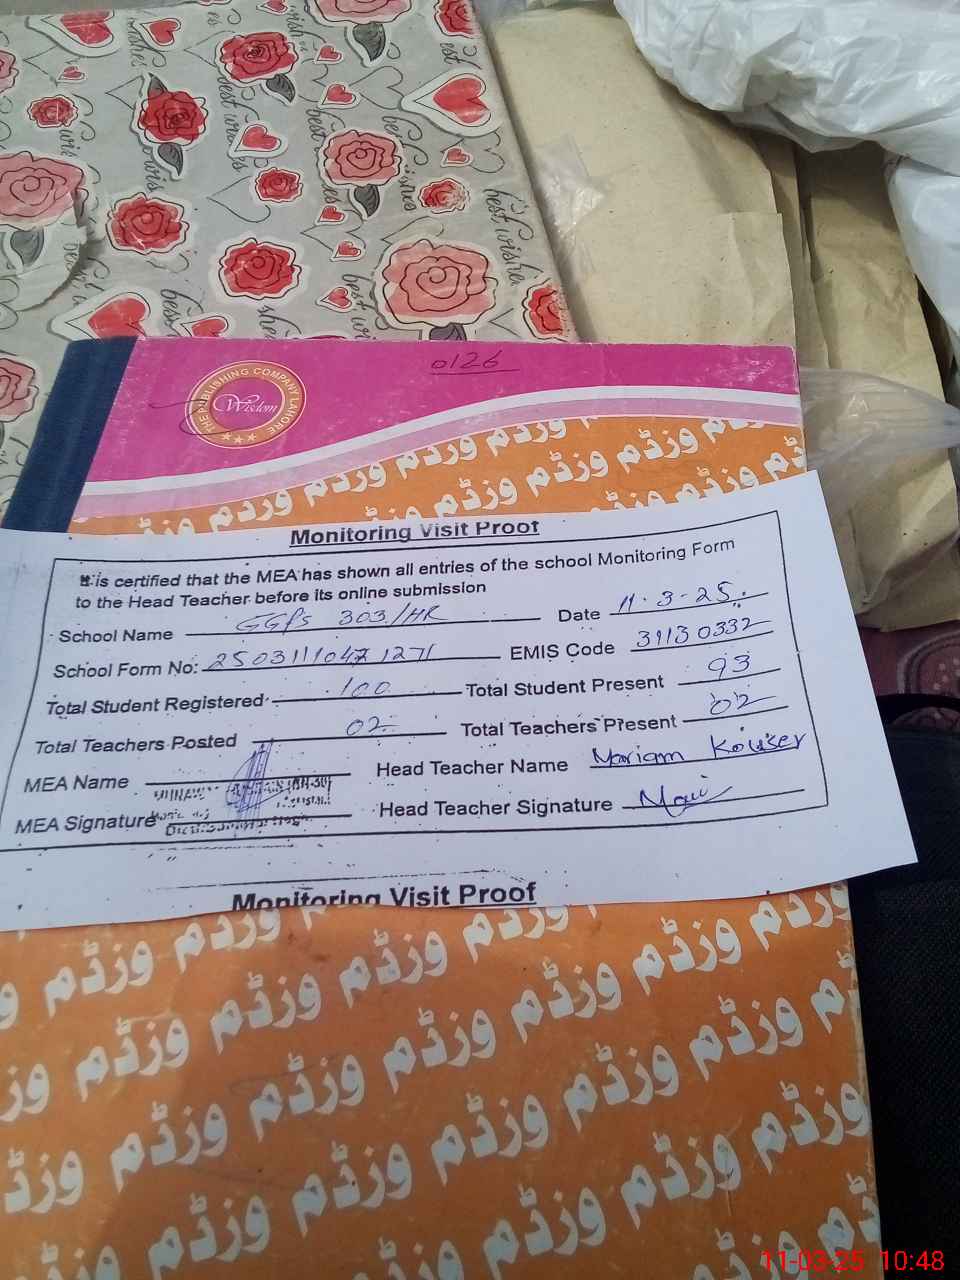 best wishes
0126
THE PUBLISHING COMPANY LAHORE
Wisdom
وزڈم وزڈم وزڈم وزڈم
وزڈم وزڈم وزڈم وزڈم
Monitoring Visit Proof
It is certified that the MEA has shown all entries of the school Monitoring Form
to the Head Teacher before its online submission
School Name GGPS 303/HR Date 11.3-25.
School Form No: EMIS Code 31130332
Total Student Registered 100 Total Student Present 93
Total Teachers Posted 02 Total Teachers Present 02
MEA Name Head Teacher Name Mariam Kouser
MEA Signature Head Teacher Signature
Monitoring Visit Proof
وزڈم وزڈم وزڈم وزڈم
وزڈم وزڈم وزڈم وزڈم
وزڈم وزڈم وزڈم وزڈم
وزڈم وزڈم وزڈم وزڈم
11-03-25 10:48